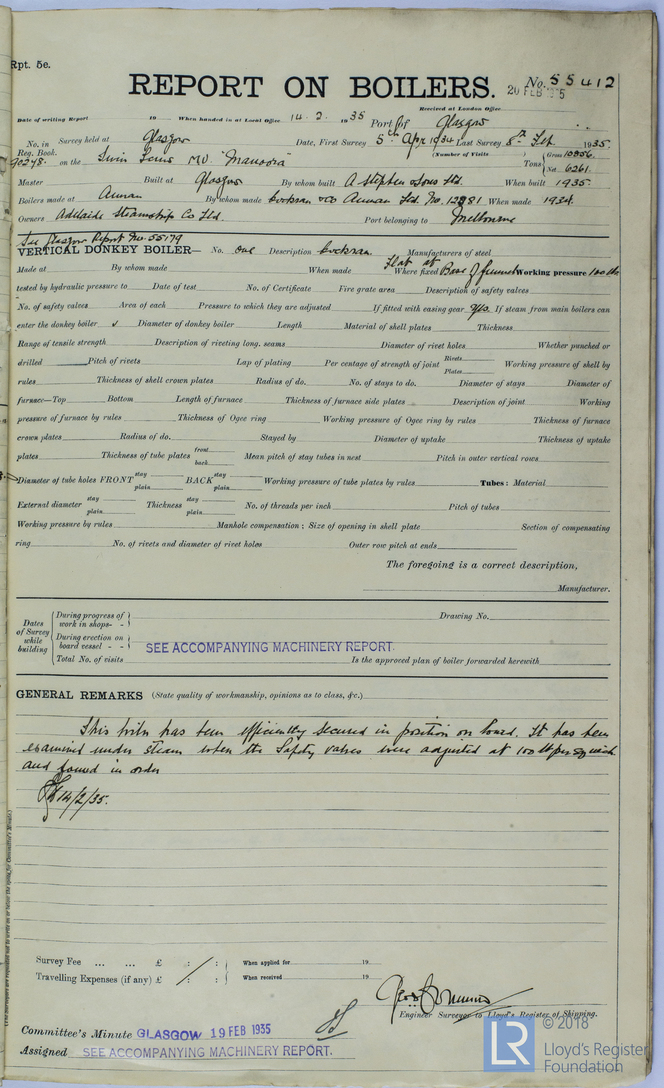 Rpt. 5e.
No. 55412
REPORT ON BOILERS.
20 FEB 1935
Received at London Office
Date of writing Report 19 When handed in at Local Office 14. 2. 1935 Port of Glasgow
No. in Survey held at Glasgow Date, First Survey 5th Apr 1934 Last Survey 8th Feb 1935
Reg. Book. (Number of Visits
90278 on the Twin Screw MV "Manoora" Tons Gross 10856 Net 6261
Master Built at Glasgow By whom built A Stephen & Sons Ltd. When built 1935
Boilers made at Annan By whom made Cochran & Co Annan Ltd. No. 12981 When made 1934
Owners Adelaide Steamship Co Ltd Port belonging to Melbourne
See Glasgow Report No. 55179
VERTICAL DONKEY BOILER— No. one Description Cochran Manufacturers of steel
Made at By whom made When made Where fixed Flat at Base of funnel Working pressure 100 lb
tested by hydraulic pressure to Date of test No. of Certificate Fire grate area Description of safety valves
No. of safety valves Area of each Pressure to which they are adjusted If fitted with easing gear yes If steam from main boilers can
enter the donkey boiler ✓ Diameter of donkey boiler Length Material of shell plates Thickness
Range of tensile strength Description of riveting long. seams Diameter of rivet holes Whether punched or
drilled Pitch of rivets Lap of plating Per centage of strength of joint Rivets Plates Working pressure of shell by
rules Thickness of shell crown plates Radius of do. No. of stays to do. Diameter of stays Diameter of
furnace—Top Bottom Length of furnace Thickness of furnace side plates Description of joint Working
pressure of furnace by rules Thickness of Ogee ring Working pressure of Ogee ring by rules Thickness of furnace
crown plates Radius of do. Stayed by Diameter of uptake Thickness of uptake
plates Thickness of tube plates front back Mean pitch of stay tubes in nest Pitch in outer vertical rows
Diameter of tube holes FRONT stay plain BACK stay plain Working pressure of tube plates by rules Tubes: Material
External diameter stay plain Thickness stay plain No. of threads per inch Pitch of tubes
Working pressure by rules Manhole compensation; Size of opening in shell plate Section of compensating
ring No. of rivets and diameter of rivet holes Outer row pitch at ends
The foregoing is a correct description,
Manufacturer.
Dates of Survey while building
During progress of work in shops- - Drawing No.
During erection on board vessel - - SEE ACCOMPANYING MACHINERY REPORT.
Total No. of visits Is the approved plan of boiler forwarded herewith
GENERAL REMARKS (State quality of workmanship, opinions as to class, &c.)
This boiler has been efficiently secured in position on board. It has been
examined under steam when the Safety valves were adjusted at 100 lb per sq inch
and found in order
14/2/35.
Survey Fee ... ... £ : : When applied for 19
Travelling Expenses (if any) £ : : When received 19
Engineer Surveyor to Lloyd's Register of Shipping.
Committee's Minute GLASGOW 19 FEB 1935
Assigned SEE ACCOMPANYING MACHINERY REPORT.
LR © 2018
Lloyd's Register
Foundation